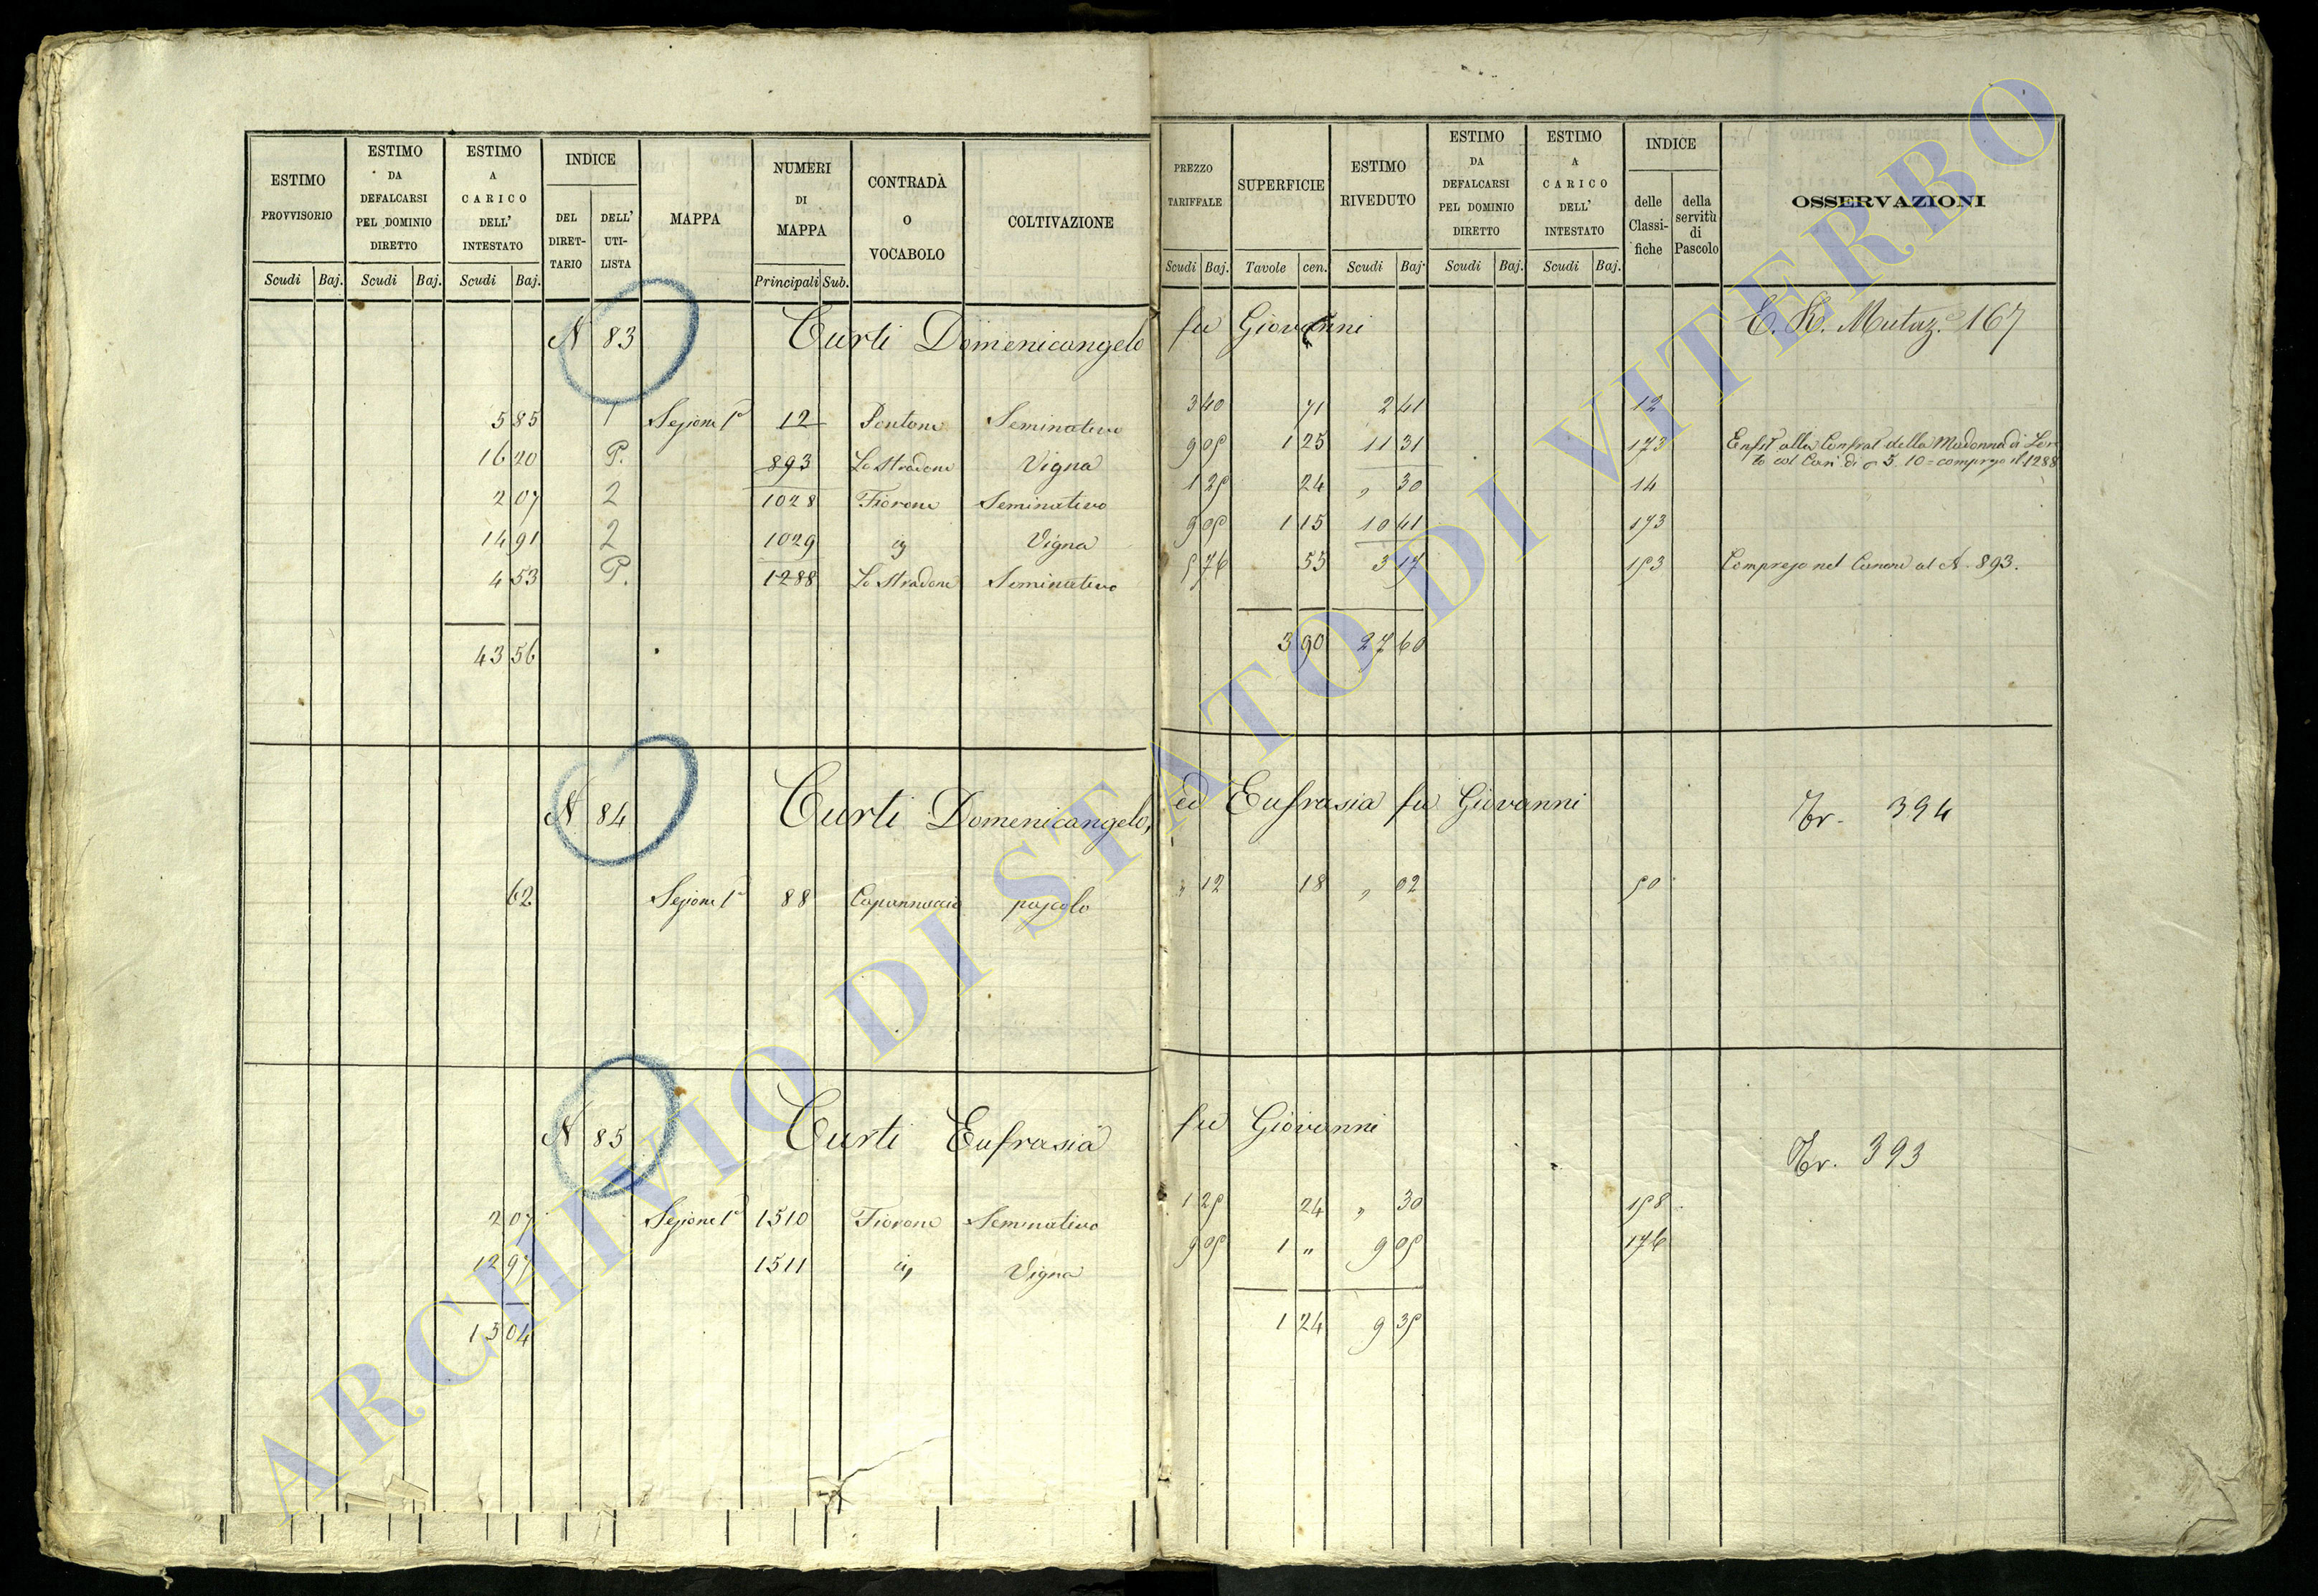 ESTIMO PROVVISORIO Scudi Baj.
ESTIMO DA DEFALCARSI PEL DOMINIO DIRETTO Scudi Baj.
ESTIMO A CARICO DELL' INTESTATO Scudi Baj.
INDICE DEL DIRET-TARIO DELL' UTI-LISTA
MAPPA
NUMERI DI MAPPA Principali Sub.
CONTRADA O VOCABOLO
COLTIVAZIONE
PREZZO TARIFFALE Scudi Baj.
SUPERFICIE Tavole cen.
ESTIMO RIVEDUTO Scudi Baj.
ESTIMO DA DEFALCARSI PEL DOMINIO DIRETTO Scudi Baj.
ESTIMO A CARICO DELL' INTESTATO Scudi Baj.
INDICE delle Classi-fiche della servitù di Pascolo
OSSERVAZIONI
N 83 Curti Domenicangelo fu Giovanni
5 85 1 Sezione 1ª 12 Pontone Seminativo 3 40 71 2 41 12
16 20 P. 893 Lo Stradone Vigna 9 05 1 25 11 31 173
2 07 2 1028 Fiorone Seminativo 1 25 24 „ 30 14
14 91 2 1029 Vigna 9 05 1 15 10 41 173
4 53 P. 1288 Lo Stradone Seminativo 5 76 55 3 17 153 Compreso nel Canone al N. 893.
43 56 3 90 27 60
N 84 Curti Domenicangelo, ed Eufrasia fu Giovanni 394
62 Sezione 1ª 88 Capannaccie pascolo „ 12 18 „ 02 50
N 85 Curti Eufrasia fu Giovanni 393
2 07 Sezione 1ª 1510 Fiorone Seminativo 1 25 24 „ 30 158
12 97 1511 Vigna 9 05 1 „ 9 05 176
15 04 1 24 9 35
E. R. Mutaz.e 167
Enfit alla Confrat della Madonna di Lore
to col Can. di 5. 10 = compreso il 1288
ARCHIVIO DI STATO DI VITERBO